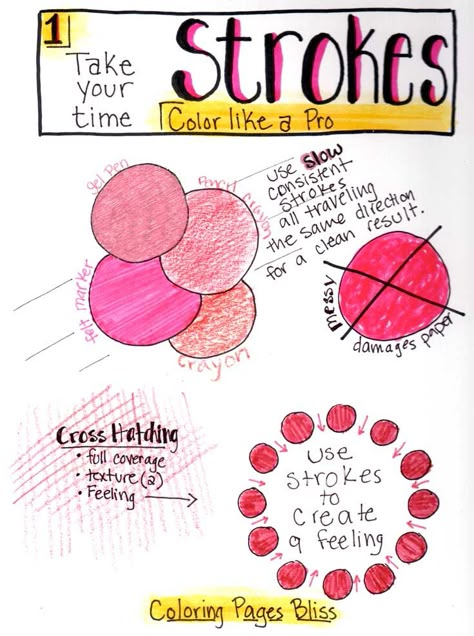 1
Take
your
time
Strokes
Color like a Pro
gel pen
Pencil crayon
felt marker
crayon
use slow
consistent
strokes
all traveling
the same direction
for a clean result.
messy
damages paper
Cross Hatching
• full coverage
• texture (2)
• Feeling →
Use
strokes
to
create
a feeling
Coloring Pages Bliss